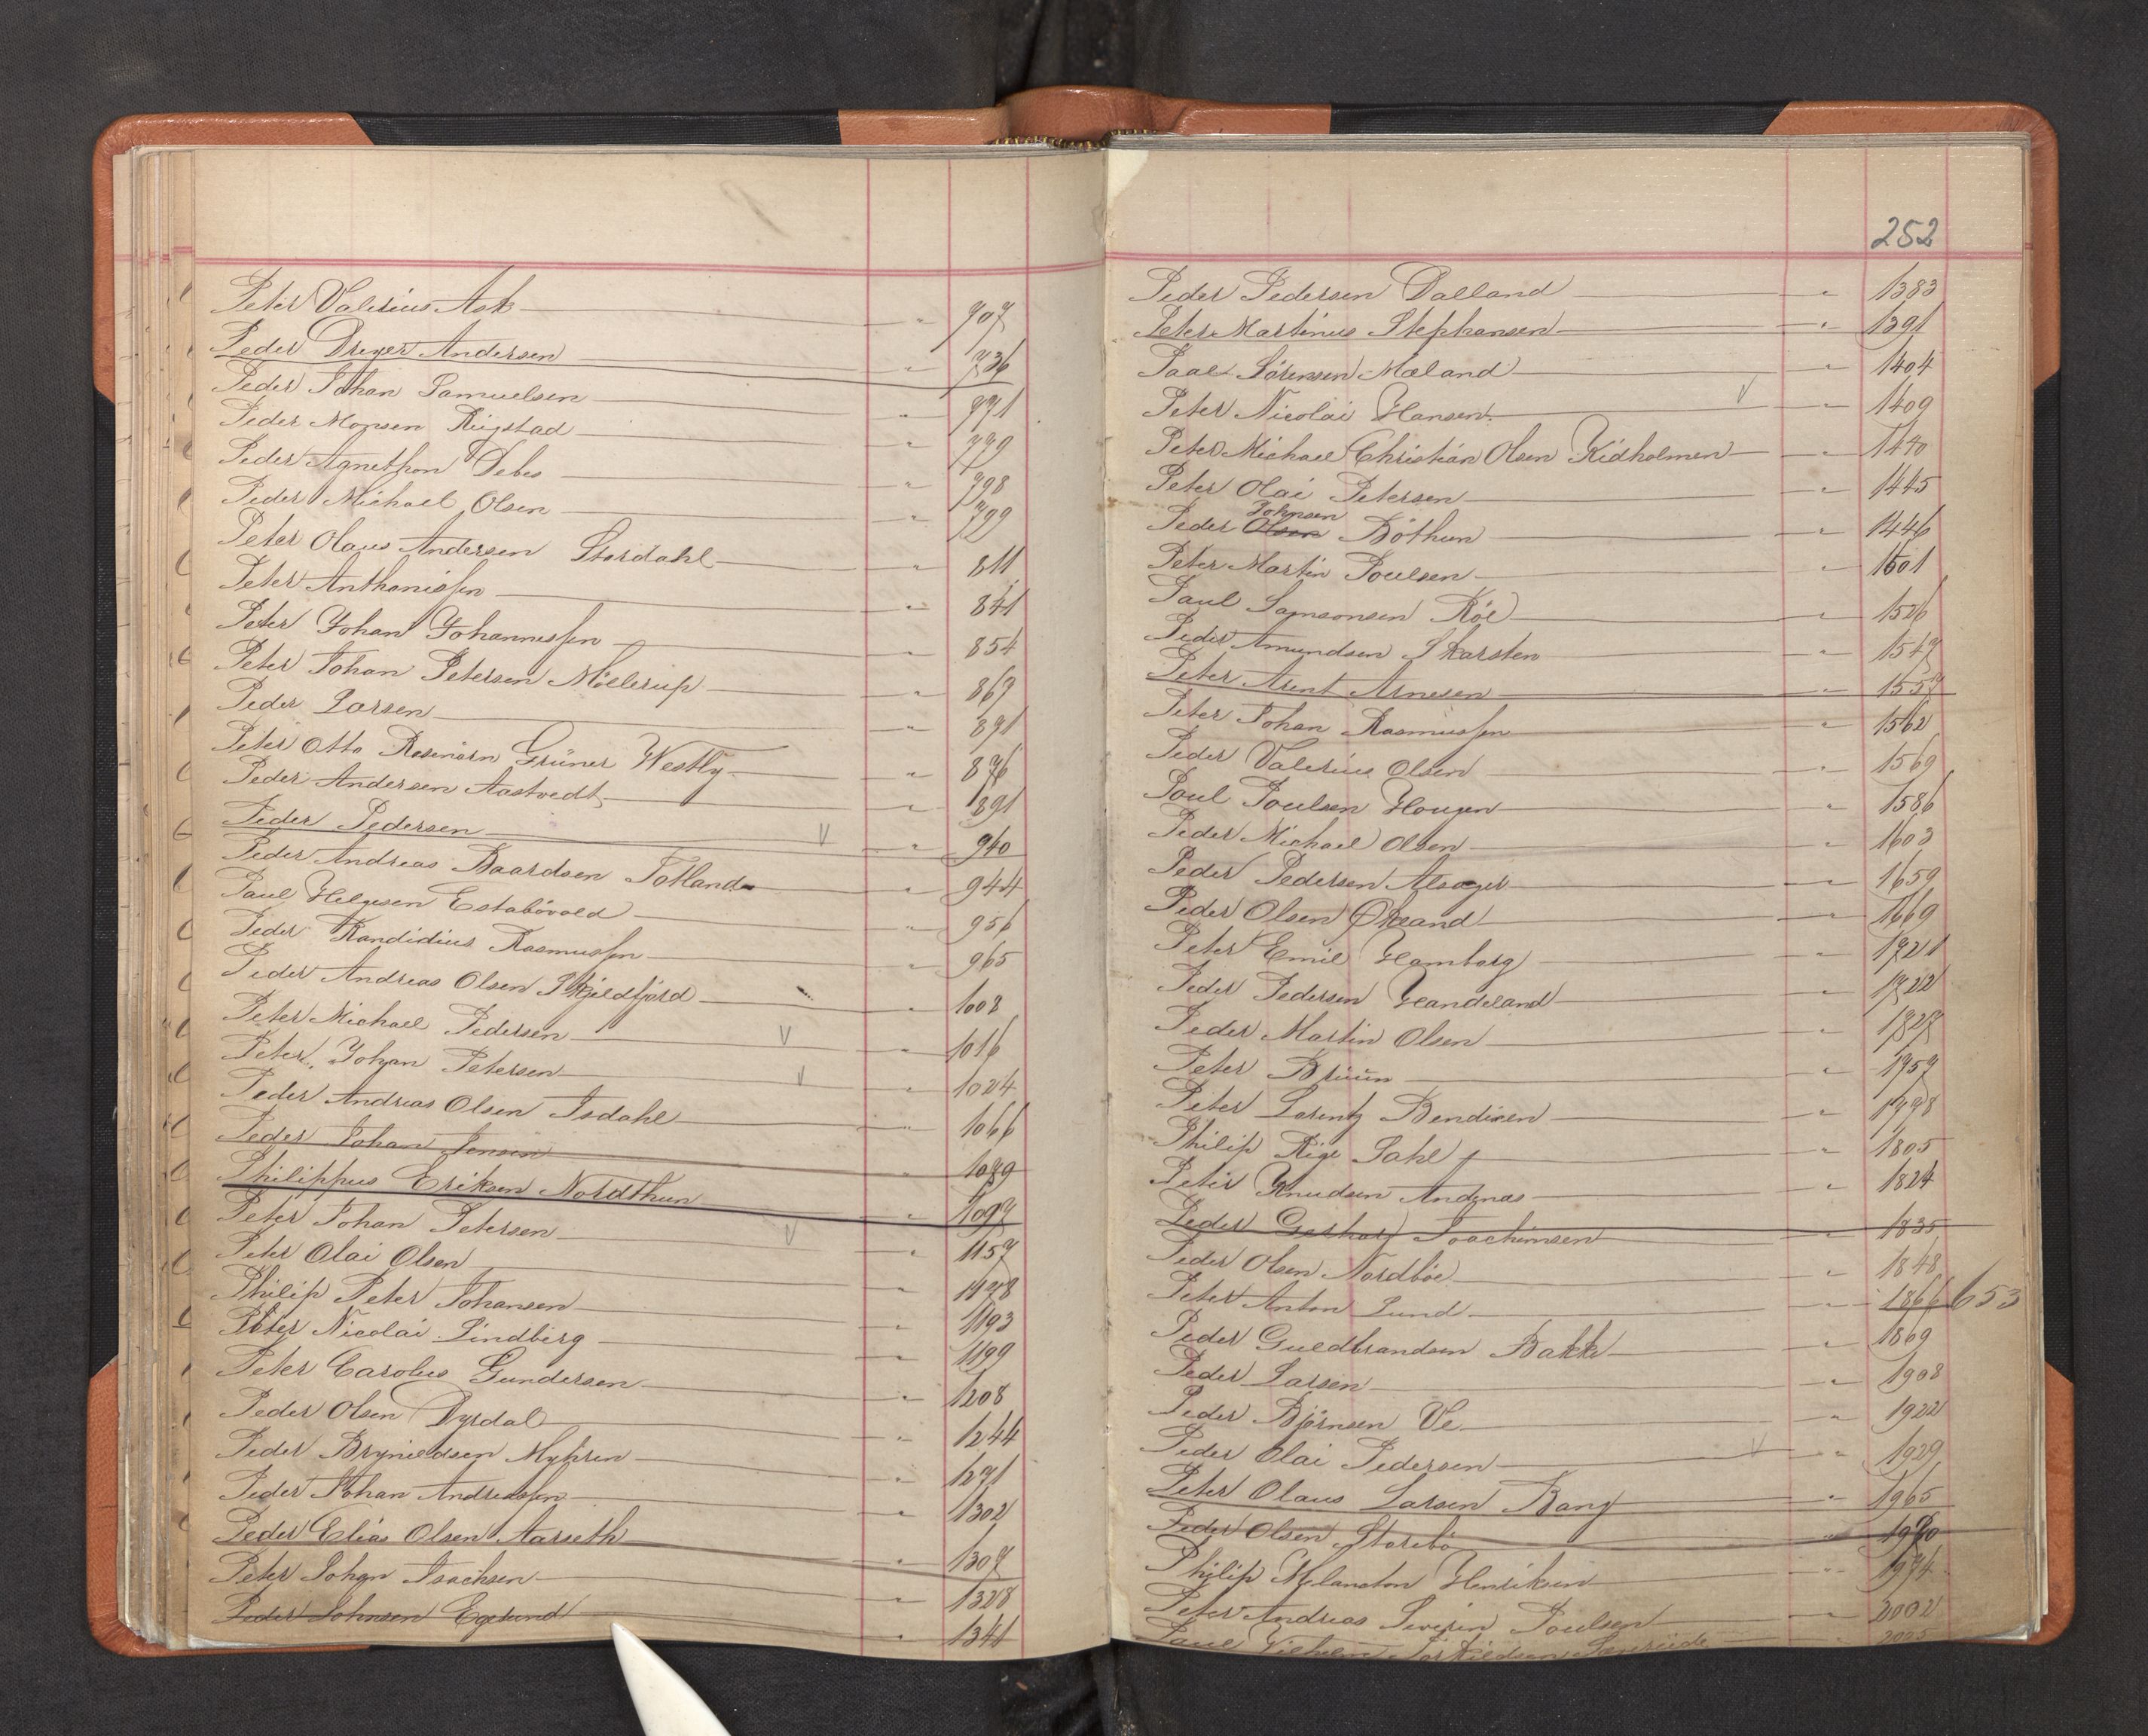 P
Peter Valerius Ask " 707
Peder Dreyer Andersen " 736
Peder Johan Samuelsen " 771
Peder Monsen Rugstad " 779
Peder Agnethon Debes " 798
Peder Michael Olsen " 799
Peter Olaus Andersen Stordahl " 811
Peter Anthonissen " 841
Peter Johan Johannessen " 854
Peter Johan Petersen Möllerup " 869
Peder Larsen " 871
Peter Otto Rosenörn Grüner Westly " 876
Peder Andersen Aastvedt " 891
Peder Pedersen V " 940
Peder Andreas Baardsen Totland " 944
Paul Helgesen " 956
Peder Kandidius Rasmussen " 965
Peder Andreas Olsen Skjeldfjord " 1008
Peter Michael Pedersen V " 1016
Peter Johan Petersen V " 1024
Peder Andreas Olsen Isdahl " 1066
Peder Johan Jensen " 1089
Philippus Eriksen Nordthun " 1097
Peter Johan Petersen V " 1157
Peter Olai Olsen " 1178
Philip Peter Johansen " 1193
Peter Nicolai Lindberg " 1199
Peter Carolus Gundersen " 1208
Peder Olsen Dyrdal " 1244
Peder Brynildsen Myhren " 1271
Peder Johan Andreassen " 1302
Peder Elias Olsen Aarseth " 1307
Peter Johan Isachsen " 1328
Peder Johnsen Egelund " 1341
252
Peder Pedersen Dalland " 1383
Peter Martinus Stephansen " 1391
Paal Sörensen Mæland " 1404
Peter Nicolai Hansen V " 1409
Peter Michael Christian Olsen Kidholmen " 1440
Peter Olai Petersen " 1445
Johnsen
Peder Olsen Böthun " 1446
Peter Martin Poulsen " 1501
Paul Samsonsen Röe " 1526
Peder Amundsen Skarsten " 1547
Peter Arent Arnesen " 1557
Peter Johan Rasmussen " 1562
Peder Valerius Olsen " 1569
Poul Poulsen Hougen " 1586
Peder Michael Olsen " 1603
Peder Pedersen Alsager " 1659
Peder Olsen Økland " 1669
Peter Emil Hamborg " 1721
Peder Pedersen Handeland " 1722
Peder Martin Olsen " 1727
Peter Brüün " 1759
Peter Lorentz Bendixen " 1798
Philip Rige Dahl " 1805
Peter Knudsen Andenæs " 1824
Peder Gerhard Joachimsen " 1835
Peder Olsen Nordböe " 1848
Peter Anton Lund " 1866 653
Peder Guldbrandsen Bakke " 1869
Peder Larsen " 1908
Peder Björnsen Ve " 1922
Peder Olai Pedersen V " 1929
Peter Olaus Larsen Bang " 1965
Peder Olsen Storebö " 1970
Philip Melancton Henriksen " 1974
Peter Andreas Severin Poulsen " 2002
Paul Vilhelm 2025